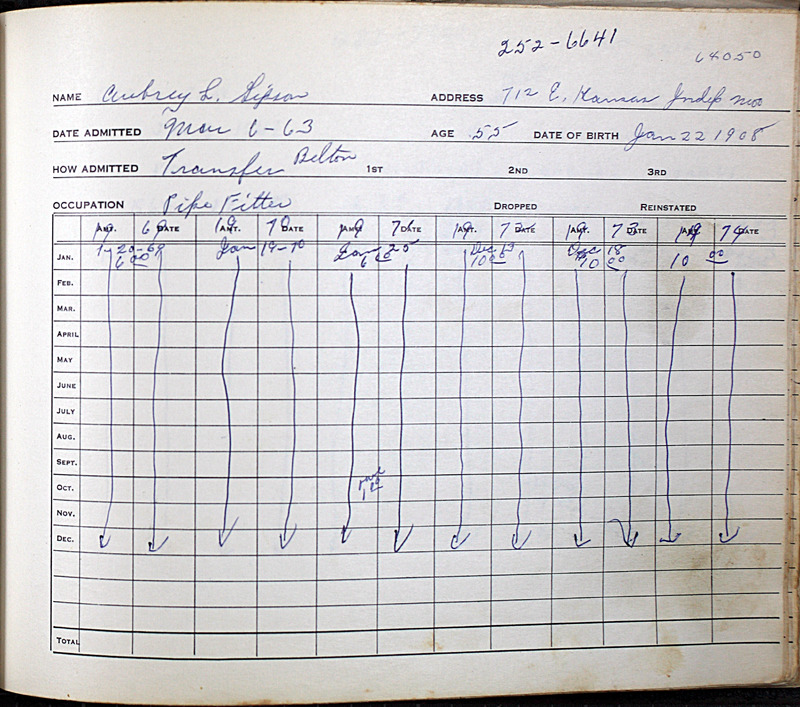 252-6641
64050
NAME Aubrey L. Sipson ADDRESS 712 E. Kansas Indep Mo
DATE ADMITTED Mar 6-63 AGE 55 DATE OF BIRTH Jan 22 1908
HOW ADMITTED Transfer Belton 1ST 2ND 3RD
OCCUPATION Pipe Fitter DROPPED REINSTATED
19 69 19 70 19 71 19 72 19 73 19 74
AMT. DATE AMT. DATE AMT. DATE AMT. DATE AMT. DATE AMT. DATE
1-20-69 Jan 19-70 Jan 25 Dec 13 Dec 18
JAN. 6 00 6 00 10 00 10 00 10 00
FEB.
MAR.
APRIL
MAY
JUNE
JULY
AUG.
SEPT.
OCT.
NOV.
DEC.
TOTAL